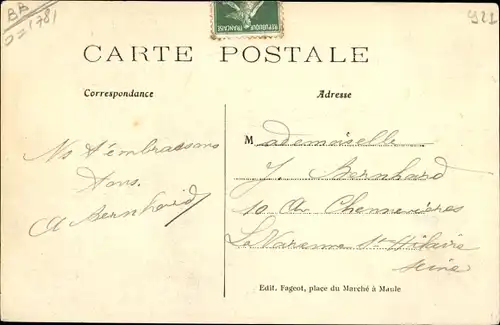 BB
D=1781
921
REPUBLIQUE FRANCAISE
CARTE POSTALE
Correspondance
Adresse
Ns t'embrassons
tous.
A Bernhard
Mademoiselle
J. Bernhard
10 Av. Chennevières
La Varenne St-Hilaire
Seine
Edit. Fageot, place du Marché à Maule